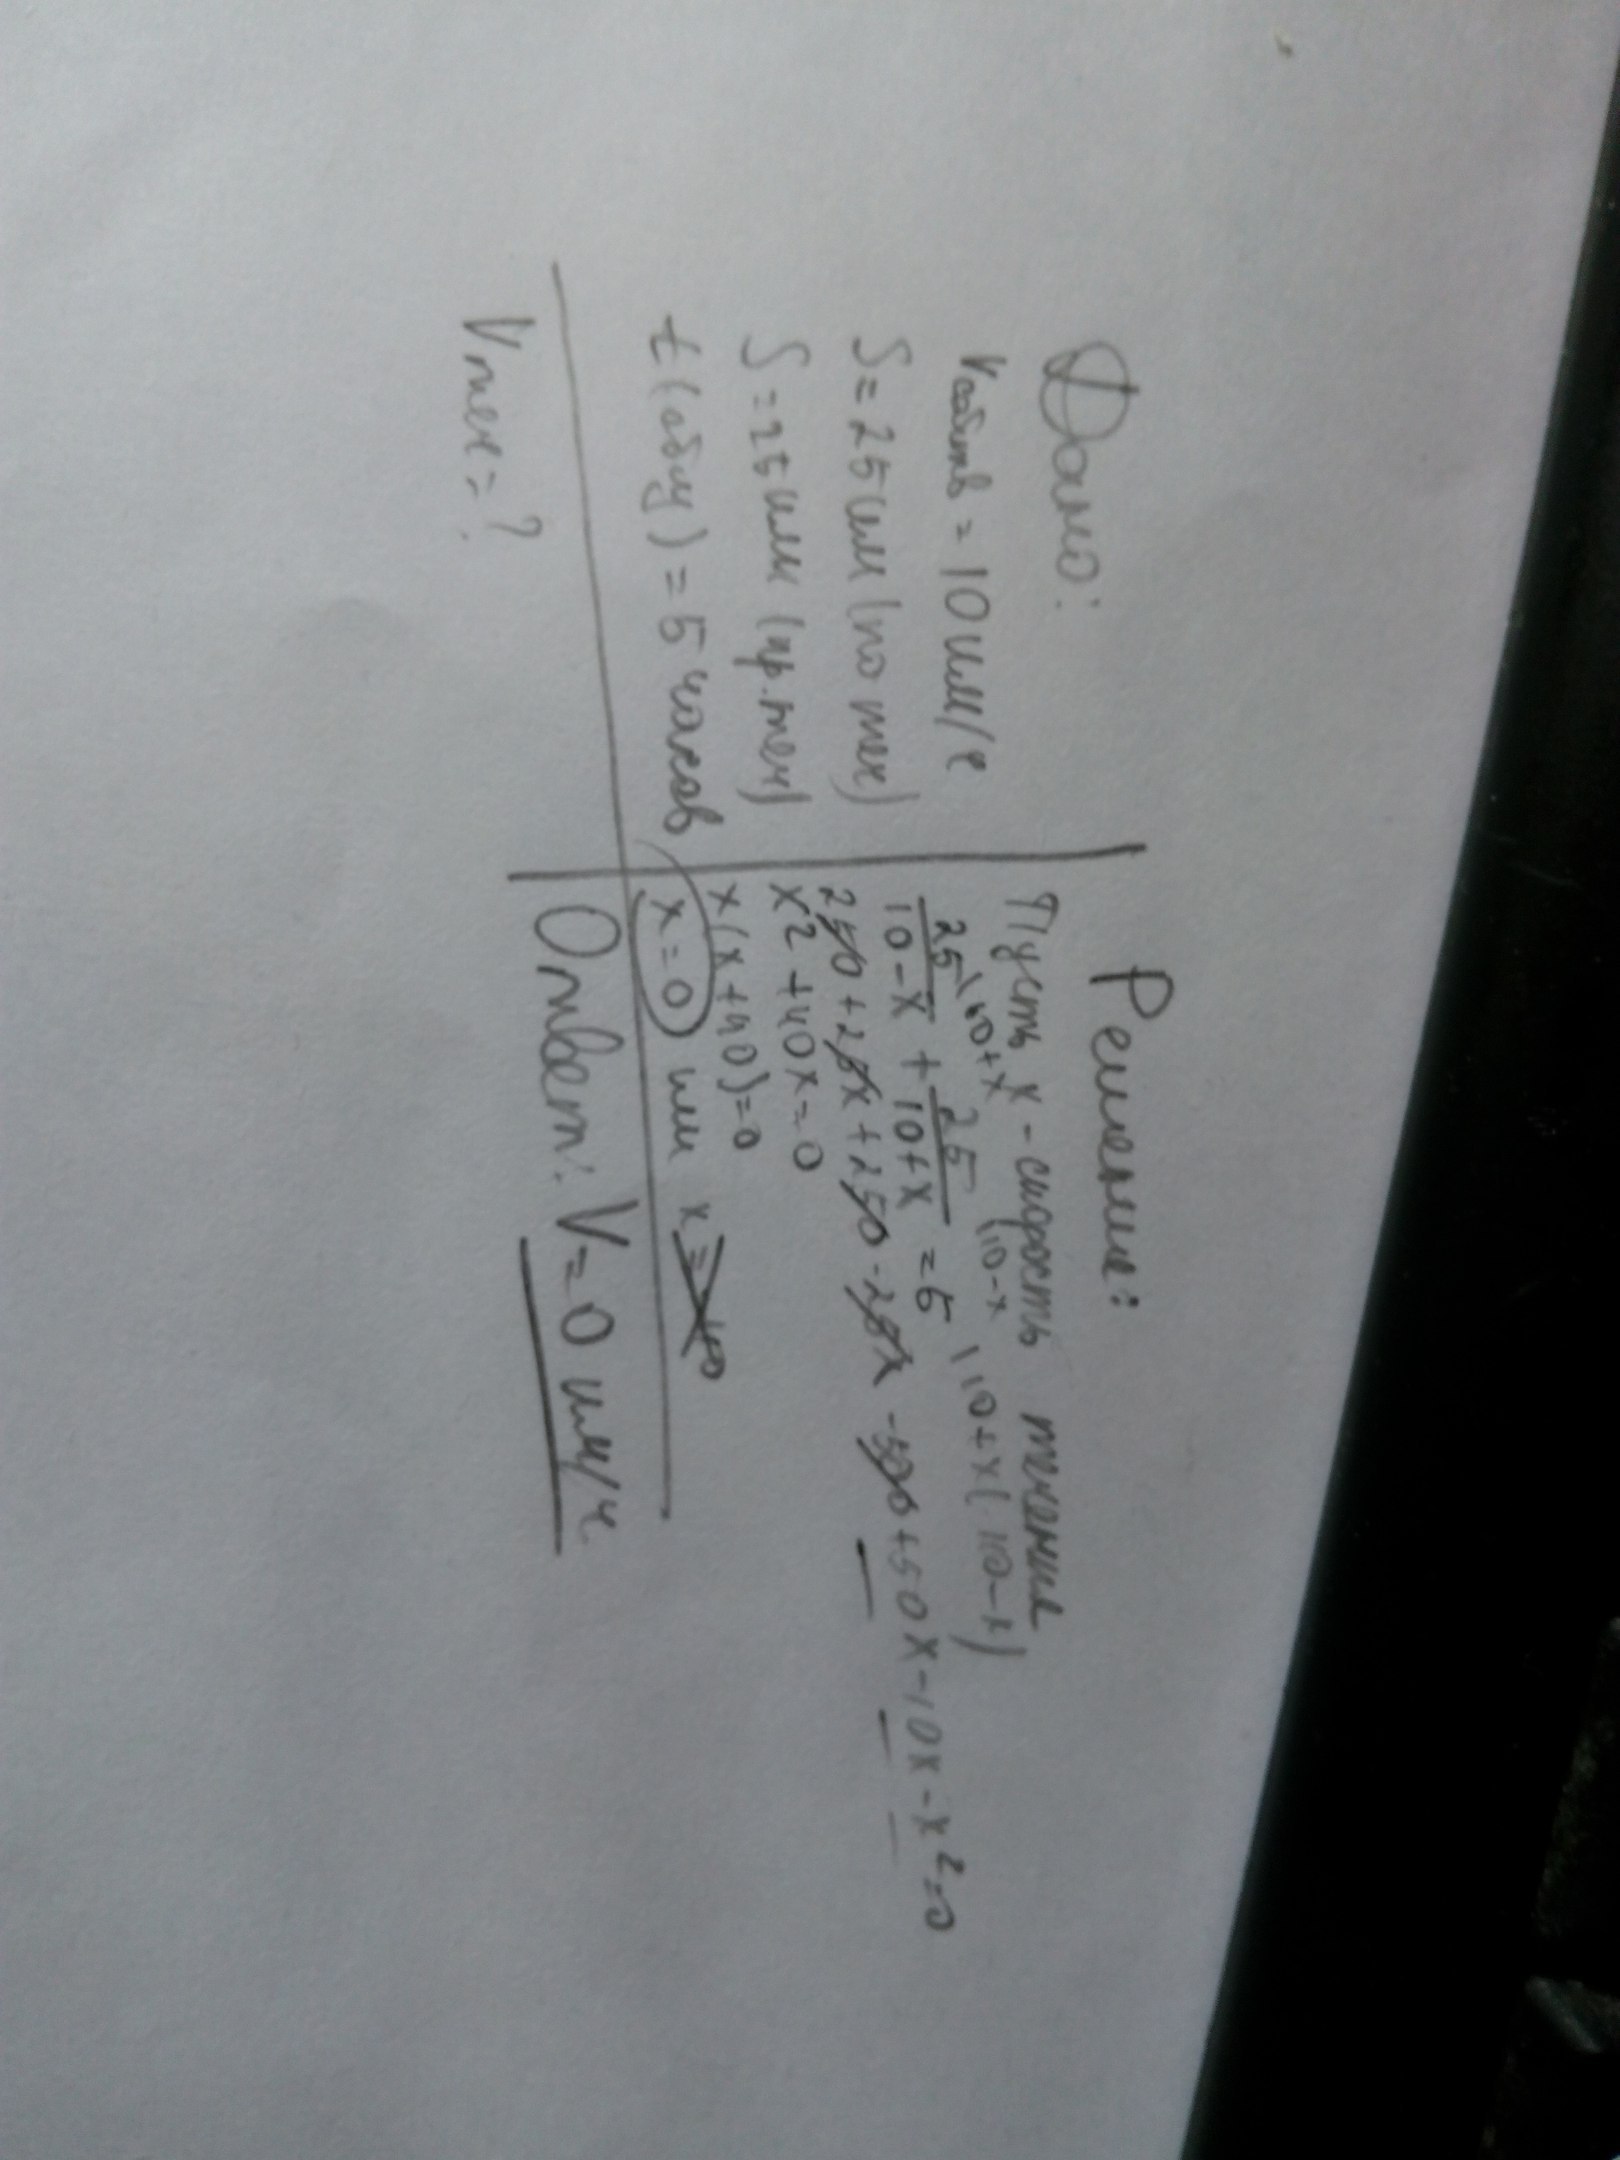 Дано:
Vсобств = 10 км/ч
S = 25 км (по теч)
S = 25 км (пр. теч)
t (общ) = 5 часов
Vтеч = ?
Решение:
Пусть x - скорость течения
25\10+x / 10-x + 25\10-x / 10+x = 5 \10+x(10-x)
250+25x+250-25x-500+50x-10x-x²=0
x²+40x=0
x(x+40)=0
x=0 или x=-40
Ответ: V=0 км/ч